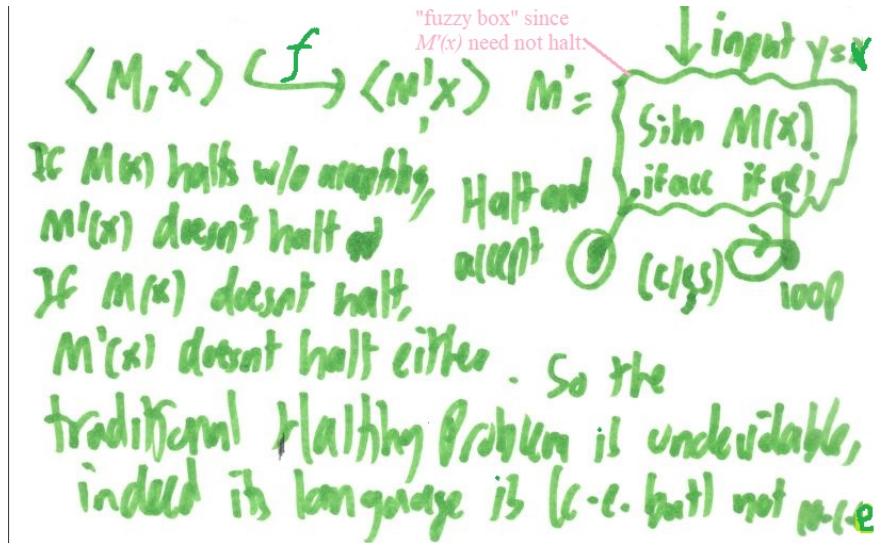 "fuzzy box" since
M'(x) need not halt.
f
input y = x
⟨M, x⟩ ↦ ⟨M', x⟩ M' =
Sim M(x)
if acc if rej
If M(x) halts w/o accepting,
M'(x) doesn't halt
Halt and
accept
loop
If M(x) doesnt halt,
M'(x) doesnt halt either. So the
traditional Halting Problem is undecidable,
indeed its language is (c.e. but) not co-c.e